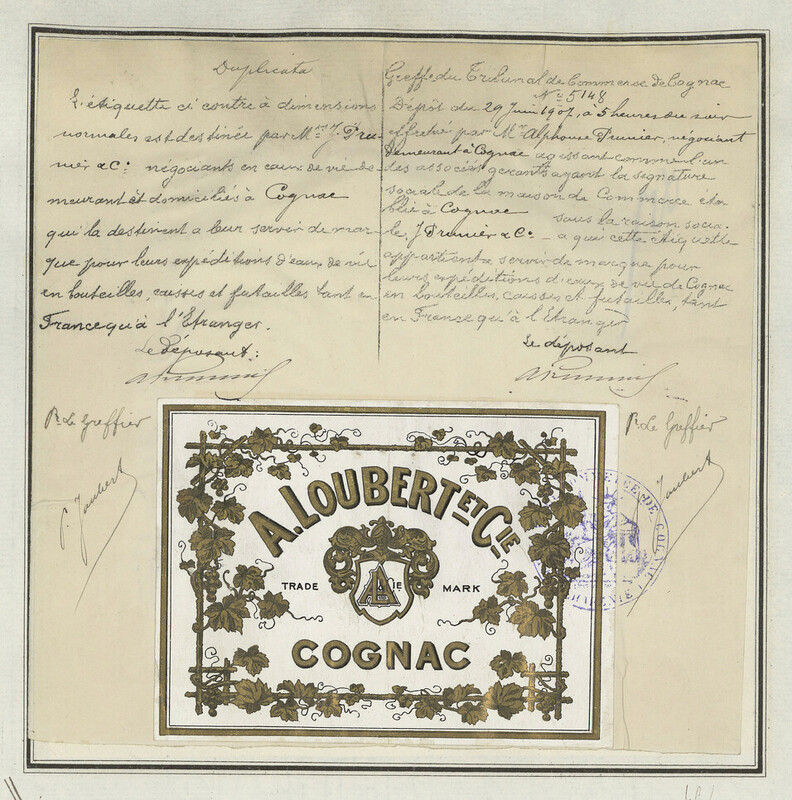 Duplicata
L'étiquette ci contre à dimensions
normales est destinée par Mrs J. Pru-
nier & Cie négociants en eaux de vie de-
meurant et domiciliés à Cognac
qui la destinent a leur servir de mar-
que pour leurs expéditions d'eaux de vie
en bouteilles, caisses et futailles tant en
France qu'à l'Etranger.
Le déposant :
P. Le Greffier
Joubert
Greffe du Tribunal de Commerce de Cognac
No 5148
Dépôt du 29 Juin 1907, à 5 heures du soir
effectué par Mr Alphonse Prunier, négociant
demeurant à Cognac agissant comme l'un
des associés gérants ayant la signature
sociale de la maison de Commerce éta-
blie à Cognac sous la raison socia-
le J Prunier & Co - a qui cette étiquette
appartient a servir de marque pour
leurs expéditions d'eaux de vie de Cognac
en bouteilles, caisses et futailles, tant
en France qu'à l'Etranger
Le déposant
P. Le Greffier
Joubert
A. LOUBERT ET CIE
TRADE MARK
COGNAC